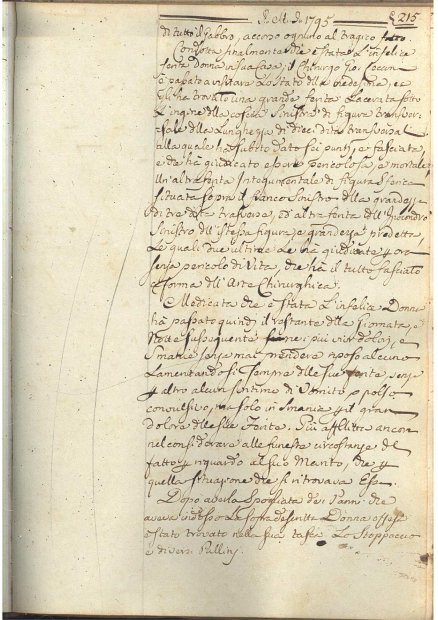 A. M. D. 1795 215
di tutto il Gabbio, accorso ognuno al tragico fatto.
Condotta finalmente che è stata l'infelice
ferita donna a sua casa, il Chirurgo Gio:
è passato a visitare lo stato della medesima, e
gli ha trovato una grande ferita lacerata sotto
l'ingine della coscia sinistra di figura transver-
sale della lunghezza di dieci dita trasversa
alla quale hà subito dato sei punti, e fasciata
e che hà giudicato essere pericolosa, e mortale
Un'altra ferita integumentale di figura
situata sopra il fianco sinistro della grandezza
di tre dita trasverse, ed altra ferita dell'Ipocondro
sinistro dell'istessa figura, e grandezza predetta,
Le quali due ultime le hà giudicate p ora
senza pericolo di Vita, che hà il tutto fasciato
a forma dell'Arte Chirurghica.
Medicata che è stata l'infelice Donna
hà passato quindi il restante della giornata, e
Notte susseguente frà i più vivi dolori, e
Smanie senza mai prendere riposo alcuno
Lamentandosi sempre delle sue ferite, senza
altro alcun sentime di Vomito, o polso
convulsivo, ma solo in smanie p il gran
dolore delle sue ferite. Più afflitta ancora
nel considerare alle funeste circostanze del
fatto p riguardo al suo Marito, che p
quella situazione che si ritrovava Essa.
Dopo averla spogliata de' Panni che
aveva indosso la sopradescritta Donna offesa
è stato trovato nella sua tasca lo Stoppaccio
e diversi Pallini